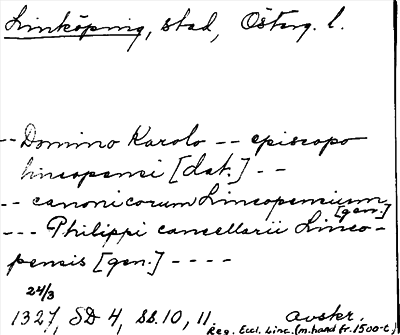 Linköping, stad, Österg. l.
-- Domino Karolo -- episcopo
lincopensi [dat.] - -
-- canonicorum Lincopensium [gen.]
--- Philippi cancellarii Linco-
pensis [gen.] - - - -
24/3
1327, SD 4, ss. 10, 11. Avskr.
Reg. Eccl. Linc. (m. hand fr. 1500-t)